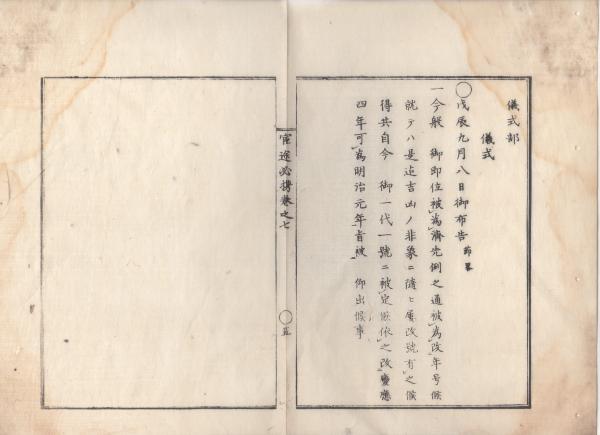 儀式部
儀式
〇戊辰九月八日御布告 節畧
一今般 御即位被爲濟先例之通被爲改年号候
就テハ是迄吉凶ノ非象ニ隨ヒ屢改號有之候
得共自今 御一代一號ニ被定候依之改慶應
四年可爲明治元年旨被 仰出候事
官途必携卷之七
〇五